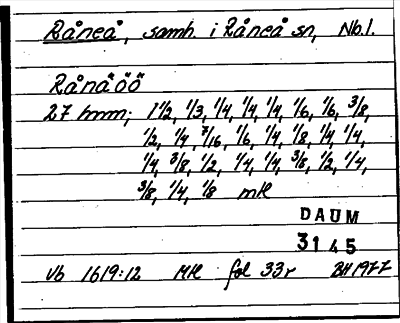 Råneå, samh. i Råneå sn, Nb.l.
Rånåöö
27 hmm; 1 1/2, 1/3, 1/4, 1/4, 1/4, 1/6, 1/6, 3/8,
1/2, 1/4, 7/16, 1/6, 1/4, 1/8, 1/4, 1/4,
1/4, 3/8, 1/2, 1/4, 1/4, 3/8, 1/2, 1/4,
3/8, 1/4, 1/8 mtl
DAUM
3145
Vb 1619:12 Mtl fol 33r BH 1977